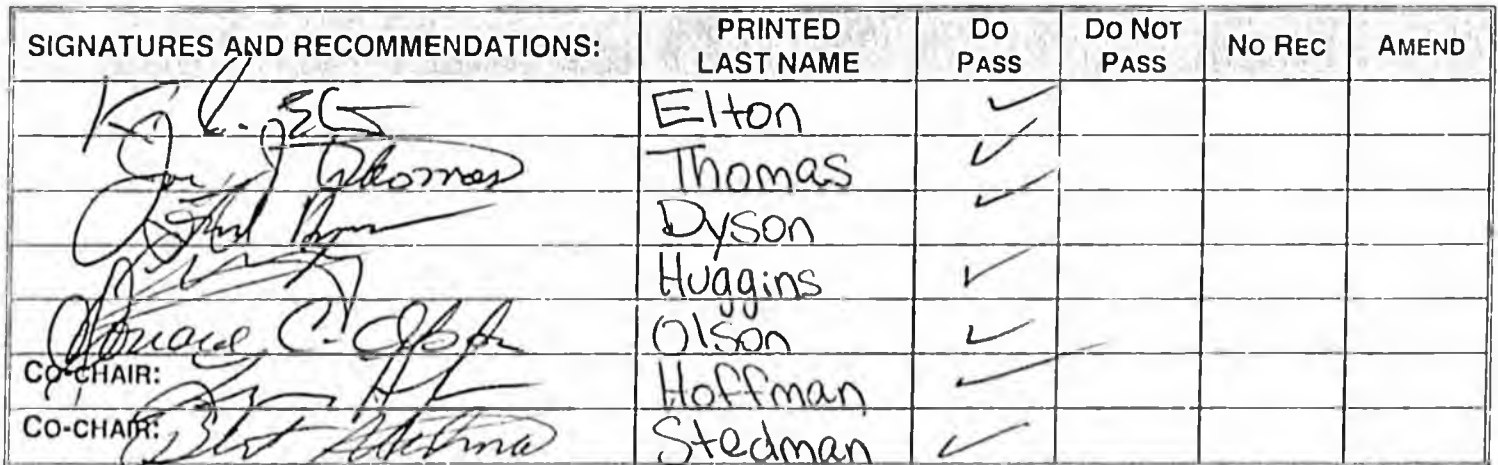 SIGNATURES AND RECOMMENDATIONS: PRINTED LAST NAME DO PASS DO NOT PASS NO REC AMEND
Elton ✓
Thomas ✓
Dyson ✓
Huggins ✓
Olson ✓
CO-CHAIR: Hoffman ✓
CO-CHAIR: Stedman ✓